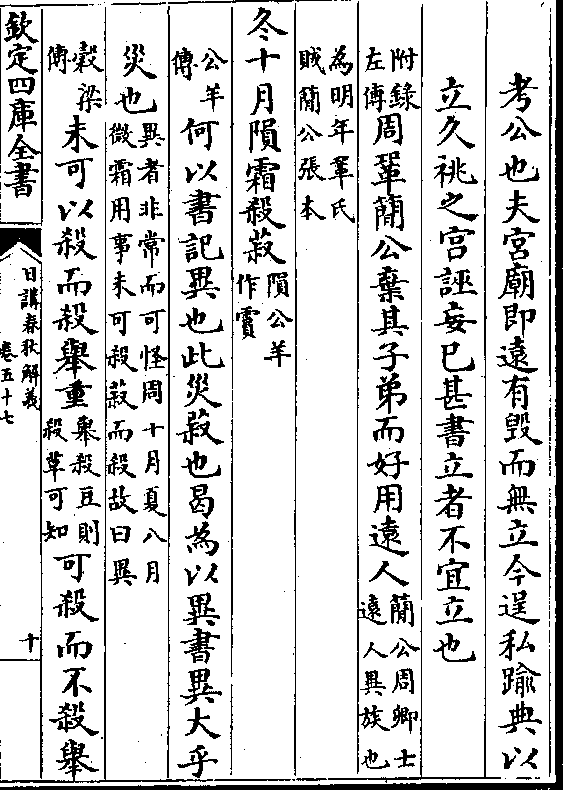 考公也夫宮廟即遠有毀而無立今逞私踰典以
立久祧之宮誣妄已甚書立者不宜立也
附錄左傳周鞏簡公棄其子弟而好用遠人簡公周卿士遠人異族也
為明年鞏氏賊簡公張本
冬十月隕霜殺菽隕公羊作霣
公羊傳何以書記異也此災菽也曷為以異書異大乎
災也異者非常而可怪周十月夏八月微霜用事未可殺菽而殺故曰異
穀梁傳未可以殺而殺舉重舉殺豆則殺草可知可殺而不殺舉
欽定四庫全書
日講春秋解義
卷五十七
十